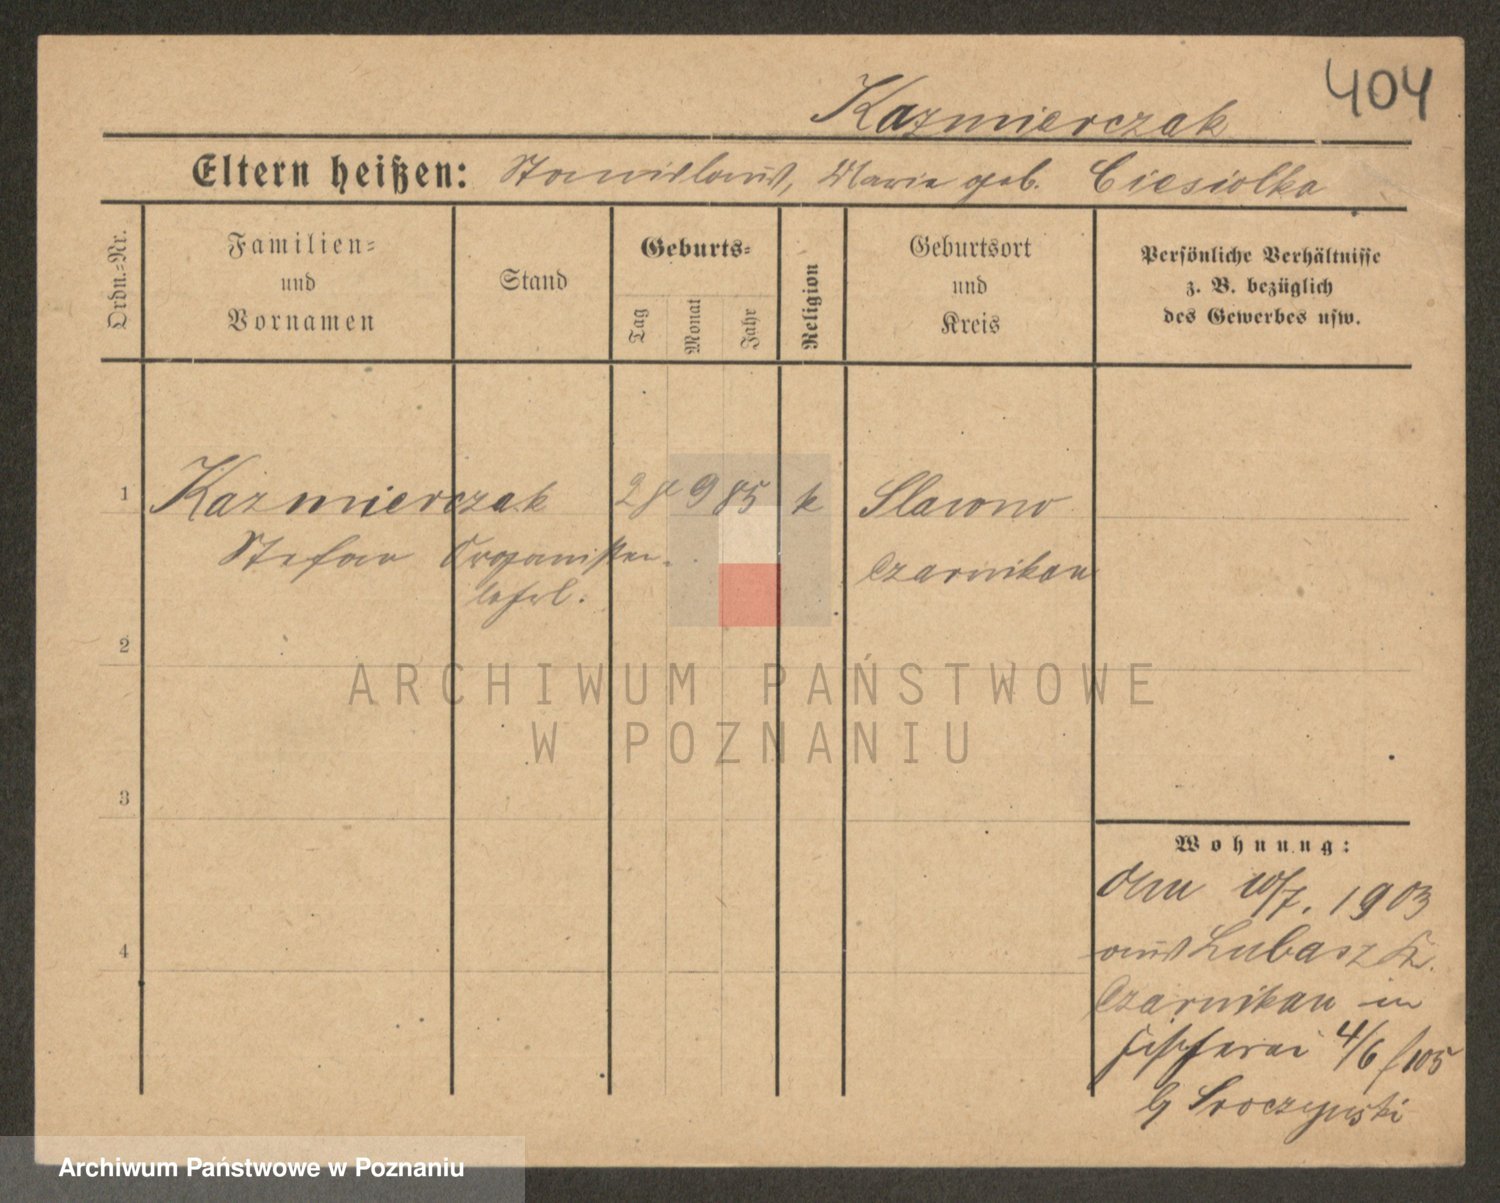 404
Kazmierczak
Eltern heißen: Stanislaus, Maria geb. Ciesiolka
Ordn.=Nr.
Familien=
und
Vornamen
Stand
Geburts=
Tag
Monat
Jahr
Religion
Geburtsort
und
Kreis
Persönliche Verhältnisse
z. B. bezüglich
des Gewerbes usw.
1 Kazmierczak 28 9 85 k Slawno
Stefan Organisten- Czarnikau
lehrl.
2
3
4
Wohnung:
Den 10/7. 1903
aus Lubasz Kr.
Czarnikau in
Fischerei 4/6 105
b/ Sroczynski
ARCHIWUM PAŃSTWOWE
W POZNANIU
Archiwum Państwowe w Poznaniu